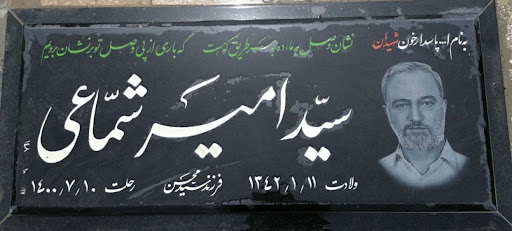 به نام ا... پاسدار خون شهیدان
نشان وصل به ما ده به هر طریق که هست که باری از پی وصل تو بر نشان برویم
سیّد امیر شمّاعی
ولادت ۱۳۴۲/۱/۱۱ فرزند سید محسن رحلت ۱۴۰۰/۷/۱۰